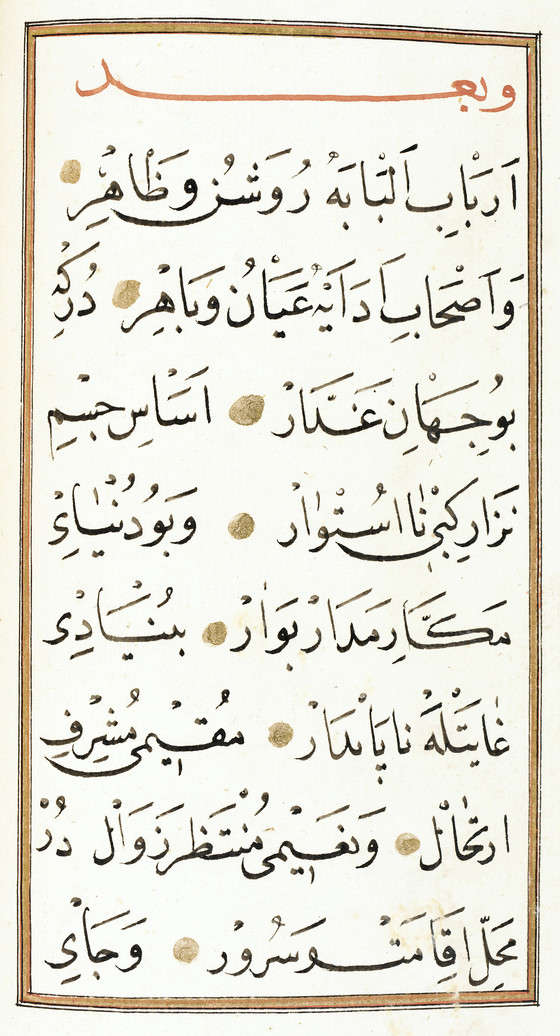 وبعد
اَرْبَابِ اَلْبَابَهْ رُوشَنْ وَظَاهِرْ
وَاَصْحَابِ اَدَايَهْ عَيَانْ وَبَاهِرْ دُرْكِهْ
بُوجِهَانِ غَدَّارْ اَسَاسِ جِسْمِ
نَزَارِ كِبِى نَا اسْتُوَارْ وَبُودُنْيَاىِ
مَكَّارِ مَدَارْ بَوَارْ بُنْيَادِى
غَايَتْلَهْ نَاپَايدَارْ مُقِيمِى مُشْرِفِ
ارْتِحَالْ وَنَعِيمِى مُنْتَظَرِ زَوَالْ دُرْ
مَحَلِّ اِقَامَتْ وَسُرُورْ وَجَاىِ